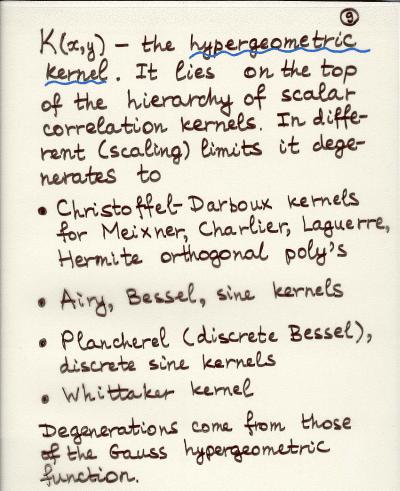 9
K(x,y) – the hypergeometric
kernel. It lies on the top
of the hierarchy of scalar
correlation kernels. In diffe-
rent (scaling) limits it dege-
nerates to
• Christoffel-Darboux kernels
for Meixner, Charlier, Laguerre,
Hermite orthogonal poly's
• Airy, Bessel, sine kernels
• Plancherel (discrete Bessel),
discrete sine kernels
• Whittaker kernel
Degenerations come from those
of the Gauss hypergeometric
function.